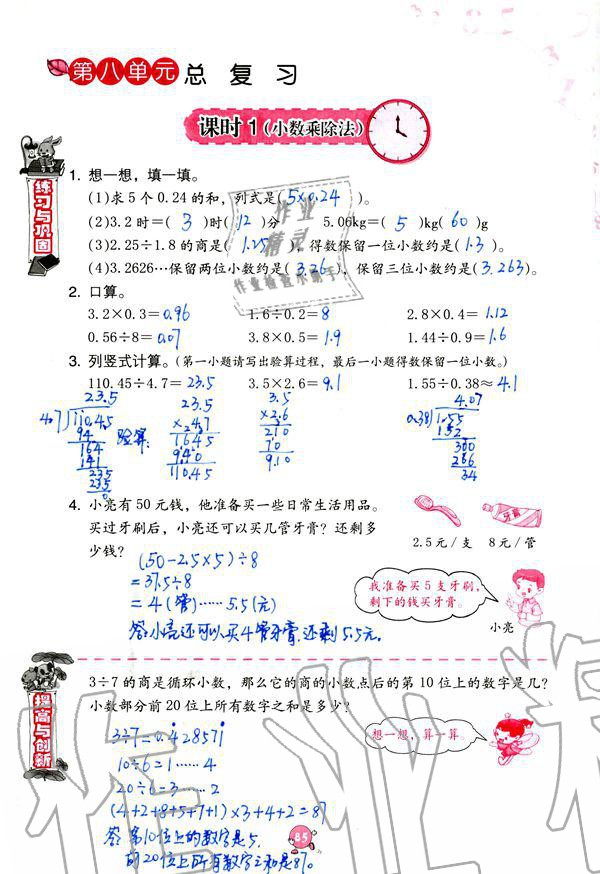 第八单元 总复习
课时1(小数乘除法)
练习与巩固
1. 想一想，填一填。
(1)求5个0.24的和，列式是( 5×0.24 )。
(2)3.2时=( 3 )时( 12 )分 5.06kg=( 5 )kg( 60 )g
(3)2.25÷1.8的商是( 1.25 )，得数保留一位小数约是( 1.3 )。
(4)3.2626…保留两位小数约是( 3.26 )，保留三位小数约是( 3.263 )。
2. 口算。
3.2×0.3= 0.96 1.6÷0.2= 8 2.8×0.4= 1.12
0.56÷8= 0.07 3.8×0.5= 1.9 1.44÷0.9= 1.6
3. 列竖式计算。(第一小题请写出验算过程，最后一小题得数保留一位小数。)
110.45÷4.7= 23.5 3.5×2.6= 9.1 1.55÷0.38≈ 4.1
23.5
4.7 110.45
94
164
141
235
235
0
验算:
23.5
×4.7
1645
940
110.45
3.5
×2.6
210
70
9.10
4.07
0.38 1.55
152
300
266
34
4. 小亮有50元钱，他准备买一些日常生活用品。
买过牙刷后，小亮还可以买几管牙膏？还剩多
少钱？
牙膏
2.5元/支 8元/管
我准备买5支牙刷，
剩下的钱买牙膏。
小亮
(50-2.5×5)÷8
=37.5÷8
=4(管)……5.5(元)
答:小亮还可以买4管牙膏,还剩5.5元。
提高与创新
3÷7的商是循环小数，那么它的商的小数点后的第10位上的数字是几？
小数部分前20位上所有数字之和是多少？
想一想，算一算。
3÷7=0.4̇28571̇
10÷6=1……4
20÷6=3……2
(4+2+8+5+7+1)×3+4+2=87
答:第10位上的数字是5.
前20位上所有数字之和是87。
85
作业精灵
作业检查小助手
作业精